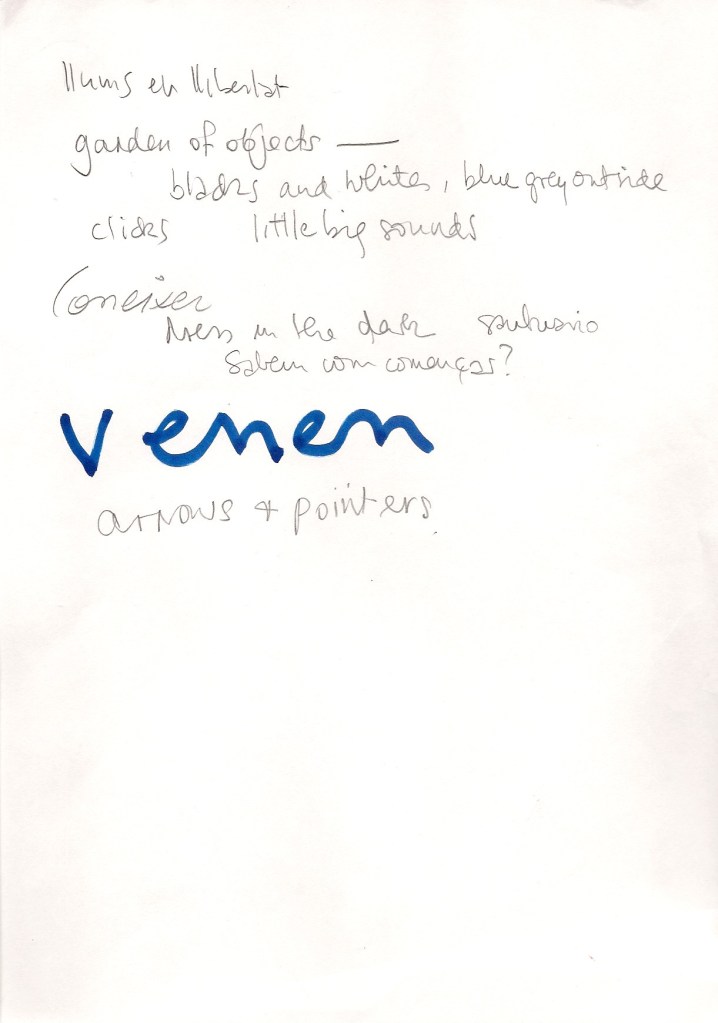 llums en llibertat
garden of objects —
blacks and whites, blue grey outside
clicks little big sounds
Coneixer
in the dark
Sabem com començar?
venen
arrows + pointers